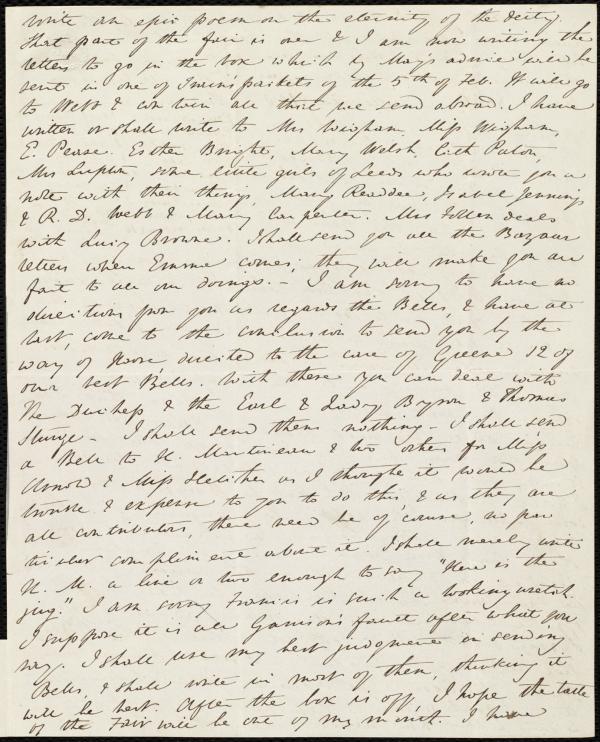 write an epic poem on the eternity of the deity.
That part of the fair is over & I am now writing the
letters to go in the box which by May's advice will be
sent in one of Train's packets of the 5th of Feb. It will go
to Webb & contain all that we send abroad. I have
written or shall write to Mrs Wigham, Miss Wigham,
E. Pease. Esther Bright, Mary Welsh, Cath Paton,
Mrs Lupton, some little girls of Leeds who wrote you a
note with their things, Mary Readdee, Isabel Jennings
& R. D. Webb & Mary Carpenter. Mrs Follen deals
with Lucy Browne. I shall send you all the Bazaar
letters when Emma comes; they will make you au
fait to all our doings. - I am sorry to have no
directions from you as regards the Bells, & have at
last, come to the conclusion to send you by the
way of Havre directed to the care of Greene 12 of
our best Bells. With these you can deal with
The Duchess & the Earl & Lady Byron & Thomas
Sturge - I shall send them nothing - I shall send
a Bell to H. Martineau & two others for Miss
Arnold & Miss Fletcher as I thought it would be
trouble & expense to you to do this, & as they are
all contributors, there need be of course, no par
ticular compliment about it. I shall merely write
H. M. a line or two enough to say "Here is the
jug." I am sorry Francis is such a looking wretch.
I suppose it is all Garrison's fault after what you
say. I shall use my best judgment in sending
Bells, & shall write in most of them, thinking it
will be best. After the box is off, I hope the tale
of the Fair will be out of my mouth. I have